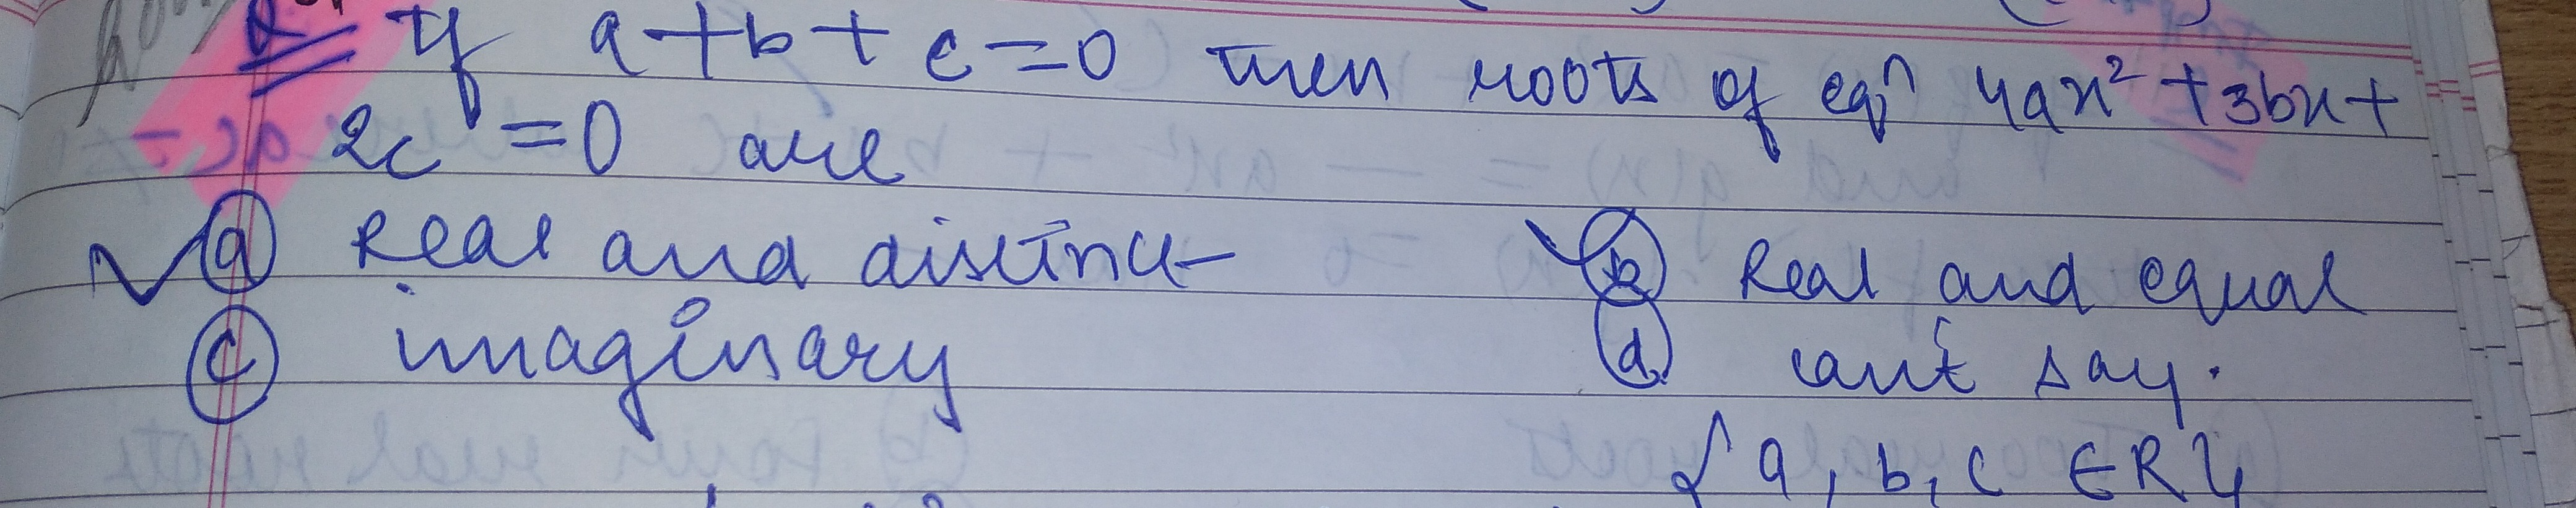 Q If a + b + c = 0 then roots of eqⁿ 4ax² + 3bx +
2c = 0 are
(a) Real and distinct
(b) Real and equal
(c) imaginary
(d) can't say.
{a, b, c ∈ R}